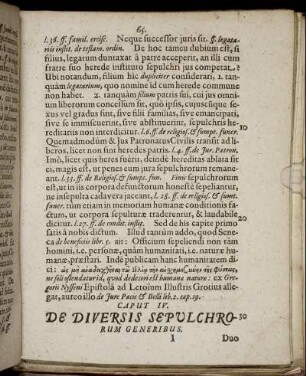 65.
l. 38. ff. famil. ercisc. Neque successor juris sit. ff. legata-
riis instit. de testam. ordin. De hoc tamen dubium est, si
filius, legatum duntaxat à patre acceperit, an illi cum
fratre suo herede instituto sepulchri jus competat.
Ubi notandum, filium hîc dupliciter considerari, 1. tan-
quàm legatarium, quo nomine id cum herede commune
non habet. 2. tanquàm filium patris sui, cui jus cum om-
nium liberorum concessum sit, quò ipsis, cujuscunque se-
xus vel gradus sint, sive filii familias, sive emancipati,
sive se immiscuerint, sive abstinuerint, sepulchris he-
reditariis non interdicitur. l. 6. ff. de religios. & sumpt. funer. 10
Quemadmodum & Jus Patronatus Civilis transit ad li-
beros, licet non heredes patris. l. 4. ff. de Jur. Patron.
Imò, licet quis heres fuerit, deindè hereditas ablata sit
ei, magis est, ut penes eum jura sepulchrorum remane-
ant. l. 33. ff. de Religios. & sumpt. fun. Finis sepulchrorum
est, ut in iis corpora defunctorum honestè sepeliantur,
ne insepulta cadavera jaceant, l. 28. ff. de religios. & sumt.
funer. cum etiam in memoriam humanæ conditionis fa-
ctum, ut corpora sepulturæ traderentur, & laudabile
dicitur. l. 27. ff. de condit. instit. Sed de his capite primo 20
satis à nobis dictum. Illud tantùm addo, quod Sene-
ca de beneficiis libr. 5. ait: Officium sepeliendi non tàm
homini, i.e. personæ, quàm humanitati, i.e. naturæ huma-
næ, præstari. Indè publicam hanc humanitatem di-
ci:
ne sibi ostendatur id, quod dedecori est humanæ naturæ: ex Gre-
gorii Nysseni Epistolâ ad Letoium Illustris Grotius alle-
gat, aureo illo de Jure Pacis & Belli lib. 2. cap. 19.
CAPUT IV.
DE DIVERSIS SEPULCHRO- 30
RUM GENERIBUS.
I Duo